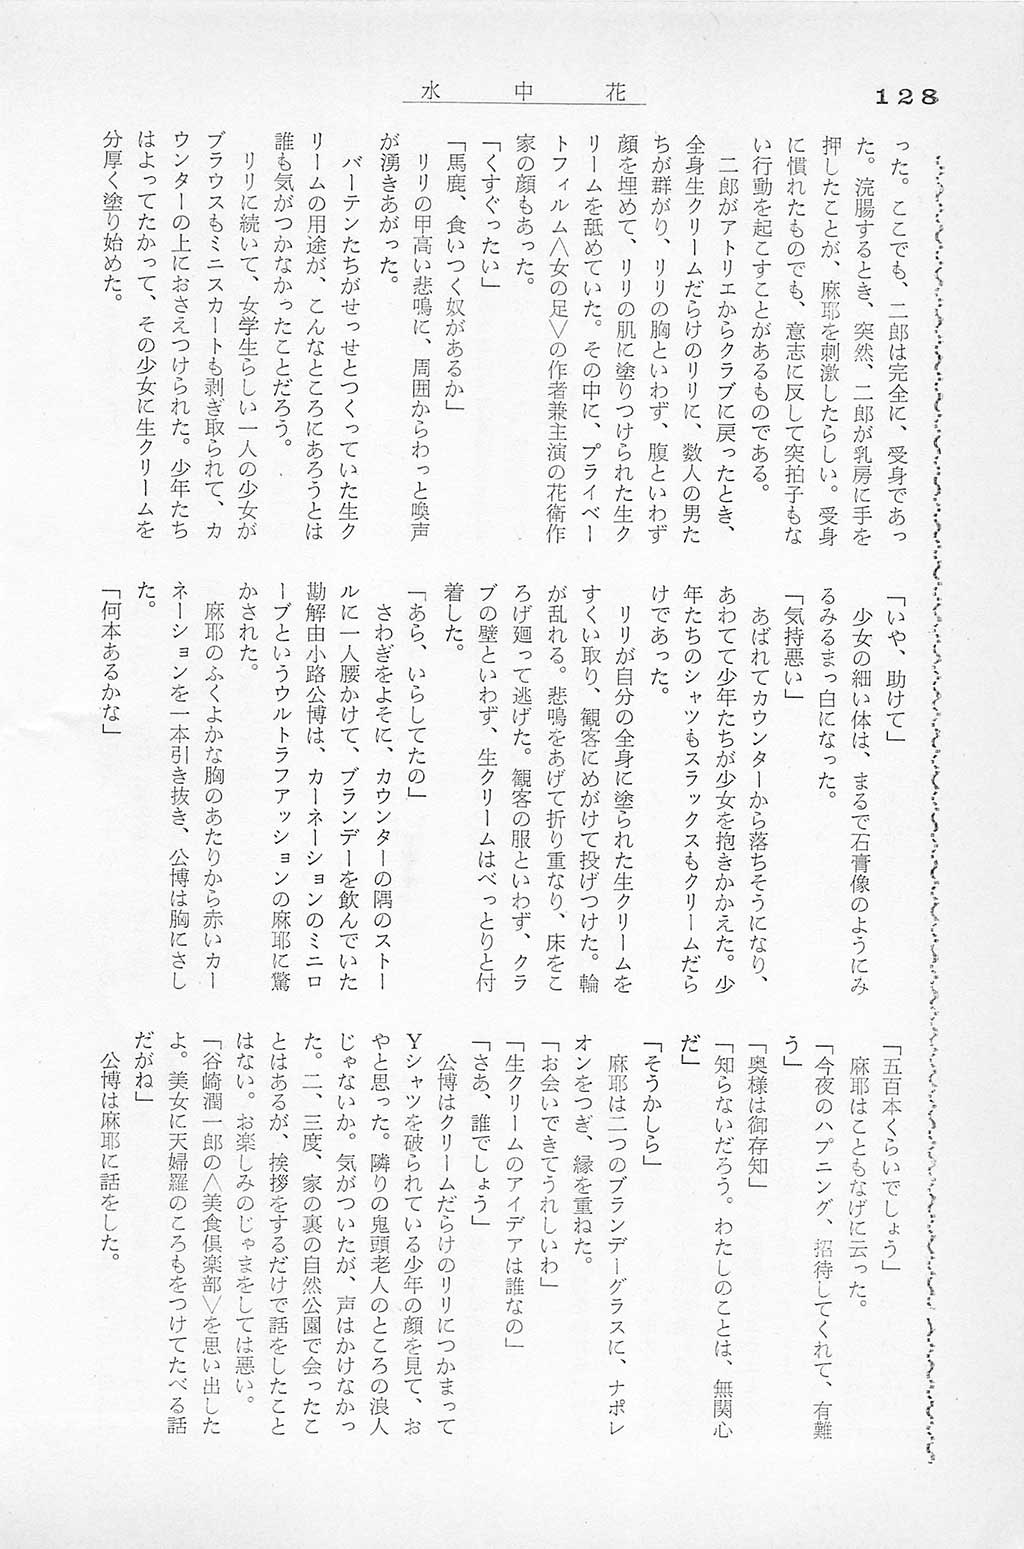 128
水中花
った。ここでも、二郎は完全に、受身であっ
た。浣腸するとき、突然、二郎が乳房に手を
押したことが、麻耶を刺激したらしい。受身
に慣れたものでも、意志に反して突拍子もな
い行動を起こすことがあるものである。
二郎がアトリエからクラブに戻ったとき、
全身生クリームだらけのリリに、数人の男た
ちが群がり、リリの胸といわず、腹といわず
顔を埋めて、リリの肌に塗りつけられた生ク
リームを舐めていた。その中に、プライベー
トフィルム＜女の足＞の作者兼主演の花衛作
家の顔もあった。
「くすぐったい」
「馬鹿、食いつく奴があるか」
リリの甲高い悲鳴に、周囲からわっと喚声
が湧きあがった。
バーテンたちがせっせとつくっていた生ク
リームの用途が、こんなところにあろうとは
誰も気がつかなかったことだろう。
リリに続いて、女学生らしい一人の少女が
ブラウスもミニスカートも剥ぎ取られて、カ
ウンターの上におさえつけられた。少年たち
はよってたかって、その少女に生クリームを
分厚く塗り始めた。
「いや、助けて」
少女の細い体は、まるで石膏像のようにみ
るみるまっ白になった。
「気持悪い」
あばれてカウンターから落ちそうになり、
あわてて少年たちが少女を抱きかかえた。少
年たちのシャツもスラックスもクリームだら
けであった。
リリが自分の全身に塗られた生クリームを
すくい取り、観客にめがけて投げつけた。輪
が乱れる。悲鳴をあげて折り重なり、床をこ
ろげ廻って逃げた。観客の服といわず、クラ
ブの壁といわず、生クリームはべっとりと付
着した。
「あら、いらしてたの」
さわぎをよそに、カウンターの隅のストー
ルに一人腰かけて、ブランデーを飲んでいた
勘解由小路公博は、カーネーションのミニロ
ーブというウルトラファッションの麻耶に驚
かされた。
麻耶のふくよかな胸のあたりから赤いカー
ネーションを一本引き抜き、公博は胸にさし
た。
「何本あるかな」
「五百本くらいでしょう」
麻耶はこともなげに云った。
「今夜のハプニング、招待してくれて、有難
う」
「奥様は御存知」
「知らないだろう。わたしのことは、無関心
だ」
「そうかしら」
麻耶は二つのブランデーグラスに、ナポレ
オンをつぎ、縁を重ねた。
「お会いできてうれしいわ」
「生クリームのアイデアは誰なの」
「さあ、誰でしょう」
公博はクリームだらけのリリにつかまって
Yシャツを破られている少年の顔を見て、お
やと思った。隣りの鬼頭老人のところの浪人
じゃないか。気がついたが、声はかけなかっ
た。二、三度、家の裏の自然公園で会ったこ
とはあるが、挨拶をするだけで話をしたこと
はない。お楽しみのじゃまをしては悪い。
「谷崎潤一郎の＜美食倶楽部＞を思い出した
よ。美女に天婦羅のころもをつけてたべる話
だがね」
公博は麻耶に話をした。